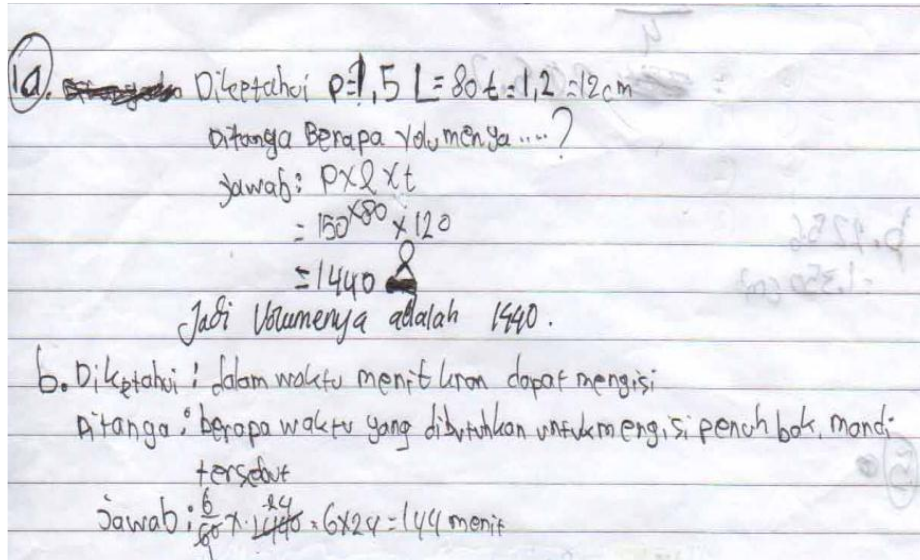 1a. Diketahui p=1,5 L=80 t=1,2=12cm
Ditanya Berapa volumenya....?
Jawab: p x l x t
= 150 x 80 x 120
= 1440
Jadi Volumenya adalah 1440.
b. Diketahui : dalam waktu menit kran dapat mengisi
Ditanya : berapa waktu yang dibutuhkan untuk mengisi penuh bak mandi
tersebut
Jawab : 6/60 x 1440 24 = 6x24=144 menit